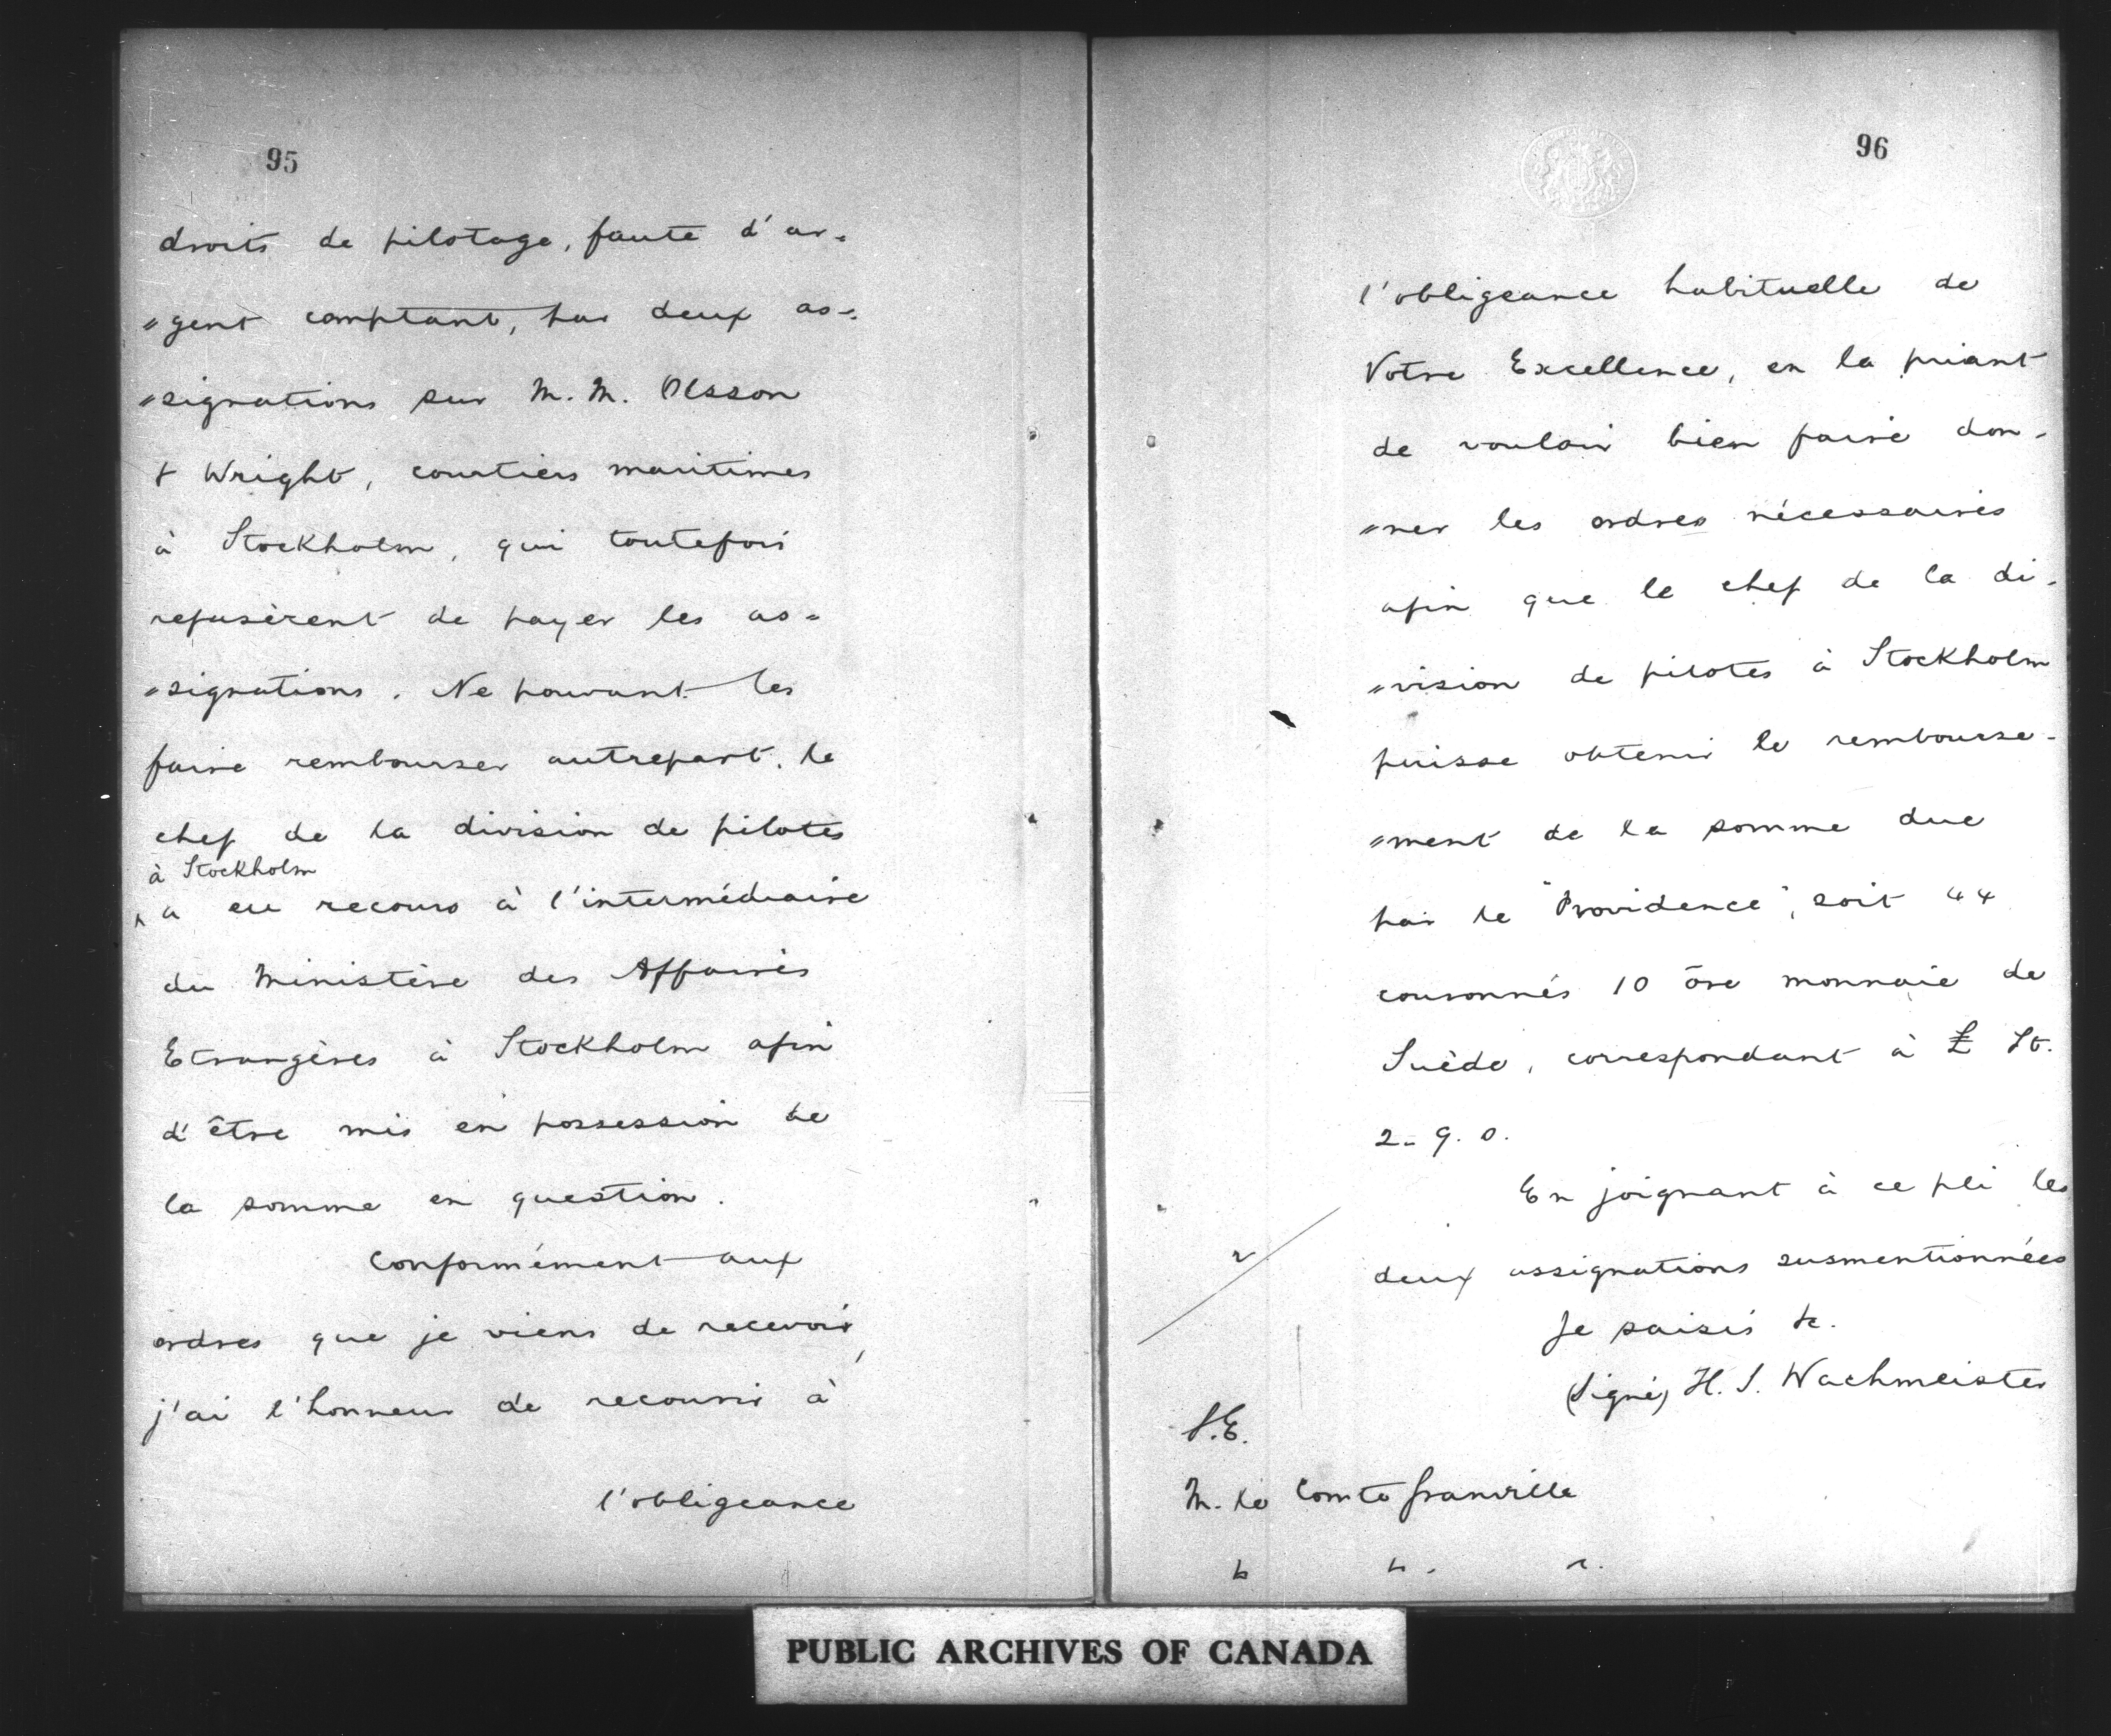 95
droits de pilotage, faute d'ar=
"gent comptant, par deux as=
"signations sur M. M. Olsson
& Wright, courtiers maritimes
à Stockholm, qui toutefois
refusèrent de payer les as=
"signations. Ne pouvant les
faire rembourser autrepart, le
chef de la division de pilotes
à Stockholm
^ a eu recours à l'intermédiaire
du Ministère des Affaires
Etrangères à Stockholm afin
d'être mis en possession de
la somme en question.
Conformément aux
ordres que je viens de recevoir,
j'ai l'honneur de recourir à
l'obligeance
96
l'obligeance habituelle de
Votre Excellence, en la priant
de vouloir bien faire don-
"ner les ordres nécessaires
afin que le chef de la di-
"vision de pilotes à Stockholm
puisse obtenir le rembourse-
"ment de la somme due
par le "Providence", soit 44
couronnes 10 öre monnaie de
Suède, correspondant à £ St.
2-9.0.
En joignant à ce pli les
2
deux assignations susmentionnées
Je saisis &c.
(Signé) H. S. Wachmeister
S.E.
M. le Comte Granville
PUBLIC ARCHIVES OF CANADA